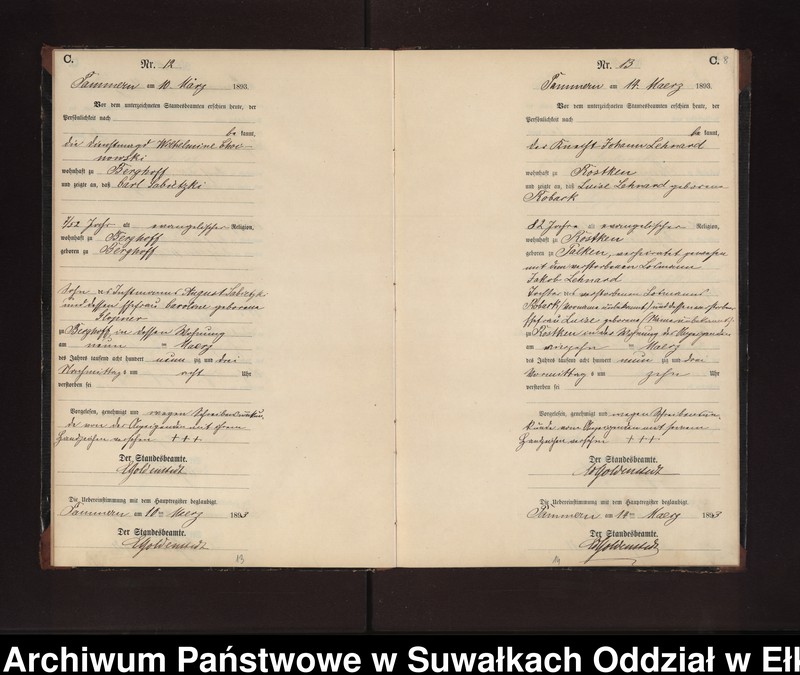 C.
Nr. 12
Tammern am 10 März 1893.
Vor dem unterzeichneten Standesbeamten erschien heute, der
Persönlichkeit nach
be kannt,
die Dienstmagd Wilhelmine Choi-
nowski
wohnhaft zu Berghoff
und zeigte an, daß Carl Sabietzki
7/52 Jahr alt evangelischer Religion,
wohnhaft zu Berghoff
geboren zu Berghoff
Sohn des Instmanns August Sabietzki
und dessen Ehefrau Caroline geborene
zu Berghoff in dessen Wohnung
am neun ten Maerz
des Jahres tausend acht hundert neun zig und drei
Nachmittag s um acht Uhr
verstorben sei
Vorgelesen, genehmigt und wegen Schreibensunkun-
de von der Anzeigenden mit ihrem
Handzeichen versehen +++
Der Standesbeamte.
Goldenstedt
Die Uebereinstimmung mit dem Hauptregister beglaubigt
Tammern am 10 ten Maerz 1893
Der Standesbeamte.
Goldenstedt
13
C. 8
Nr. 13
Tammern am 14. Maerz 1893.
Vor dem unterzeichneten Standesbeamten erschien heute, der
Persönlichkeit nach
be kannt,
der Knecht Johann Lehnard
wohnhaft zu Rostken
und zeigte an, daß Luise Lehnard geborene
Kobark
82 Jahre alt evangelischer Religion,
wohnhaft zu Rostken
geboren zu Talken, verheiratet gewesen
mit dem verstorbenen Losmann
Jakob Lehnard
Tochter des verstorbenen Losmanns
Kobark (Vorname unbekannt) und dessen verstorbenen
Ehefrau Luise geborene (Name unbekannt)
zu Rostken in der Wohnung des Anzeigenden
am vierzehn ten Maerz
des Jahres tausend acht hundert neun zig und drei
Vormittag s um zehn Uhr
verstorben sei
Vorgelesen, genehmigt und wegen Schreibensun-
kunde vom Anzeigenden mit seinem
Handzeichen versehen +++
Der Standesbeamte.
Goldenstedt
Die Uebereinstimmung mit dem Hauptregister beglaubigt
Tammern am 14 ten Maerz 1893
Der Standesbeamte.
Goldenstedt
14
Archiwum Państwowe w Suwałkach Oddział w Ełk